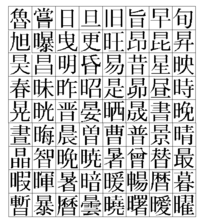 魯嘗日旦旧旨早旬
旭曝曳更旺昂昆昇
昊昌明昏易昔星映
春昧昨昭是昴昼時
晃晄晋晏晒晟書晩
昼晦晨曽曹普景晴
晶智晩晄暑曾替最
暇暉暑暗暖暢暦暮
暫暴暦曇曉曙曖曜